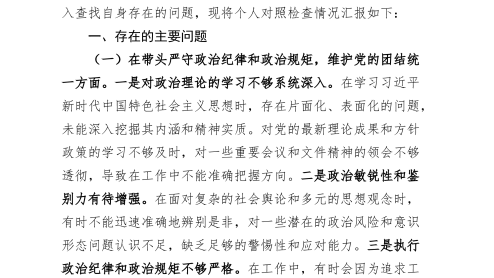 入查找自身存在的问题，现将个人对照检查情况汇报如下：
一、存在的主要问题
（一）在带头严守政治纪律和政治规矩，维护党的团结统
一方面。一是对政治理论的学习不够系统深入。在学习习近平
新时代中国特色社会主义思想时，存在片面化、表面化的问题，
未能深入挖掘其内涵和精神实质。对党的最新理论成果和方针
政策的学习不够及时，对一些重要会议和文件精神的领会不够
透彻，导致在工作中不能准确把握方向。二是政治敏锐性和鉴
别力有待增强。在面对复杂的社会舆论和多元的思想观念时，
有时不能迅速准确地辨别是非，对一些潜在的政治风险和意识
形态问题认识不足，缺乏足够的警惕性和应对能力。三是执行
政治纪律和政治规矩不够严格。在工作中，有时会因为追求工